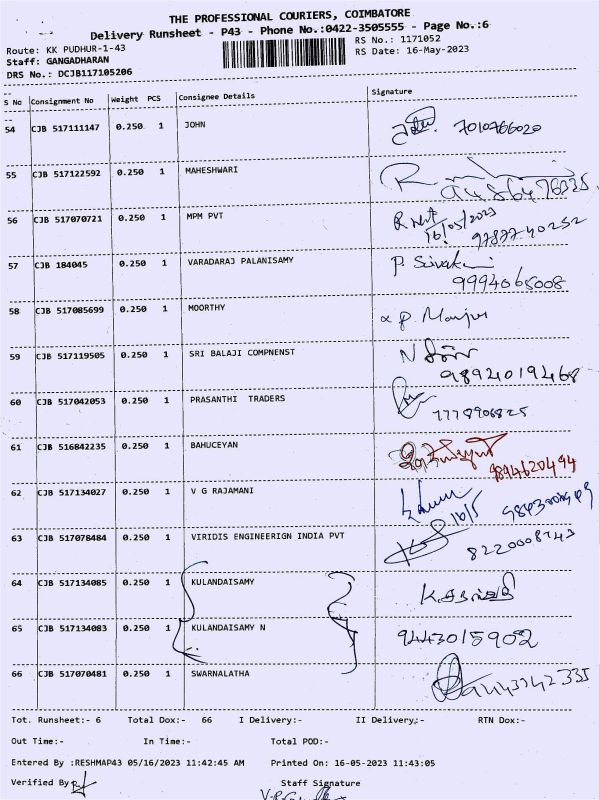 THE PROFESSIONAL COURIERS, COIMBATORE
Delivery Runsheet - P43 - Phone No.:0422-3505555 - Page No.:6
Route: KK PUDHUR-1-43 RS No.: 1171052
Staff: GANGADHARAN RS Date: 16-May-2023
DRS No.: DCJB117105206
S No Consignment No Weight PCS Consignee Details Signature
54 CJB 517111147 0.250 1 JOHN 7010766020
55 CJB 517122592 0.250 1 MAHESHWARI
56 CJB 517070721 0.250 1 MPM PVT
16/05/2023
9787740252
57 CJB 184045 0.250 1 VARADARAJ PALANISAMY
9994065008
58 CJB 517085699 0.250 1 MOORTHY
59 CJB 517119505 0.250 1 SRI BALAJI COMPNENST
9894019468
60 CJB 517042053 0.250 1 PRASANTHI TRADERS
61 CJB 516842235 0.250 1 BAHUCEYAN
9894620494
62 CJB 517134027 0.250 1 V G RAJAMANI
16/5
63 CJB 517078484 0.250 1 VIRIDIS ENGINEERIGN INDIA PVT
8220008743
64 CJB 517134085 0.250 1 KULANDAISAMY
65 CJB 517134083 0.250 1 KULANDAISAMY N 9443015902
66 CJB 517070481 0.250 1 SWARNALATHA 9443742335
Tot. Runsheet:- 6 Total Dox:- 66 I Delivery:- II Delivery:- RTN Dox:-
Out Time:- In Time:- Total POD:-
Entered By :RESHMAP43 05/16/2023 11:42:45 AM Printed On: 16-05-2023 11:43:05
Verified By Staff Signature